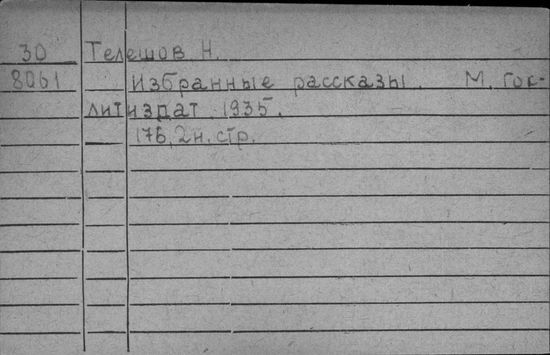 30 Телешов Н.
8061 Избранные рассказы. М. Гос-
литиздат. 1935.
176, 2 н. стр.